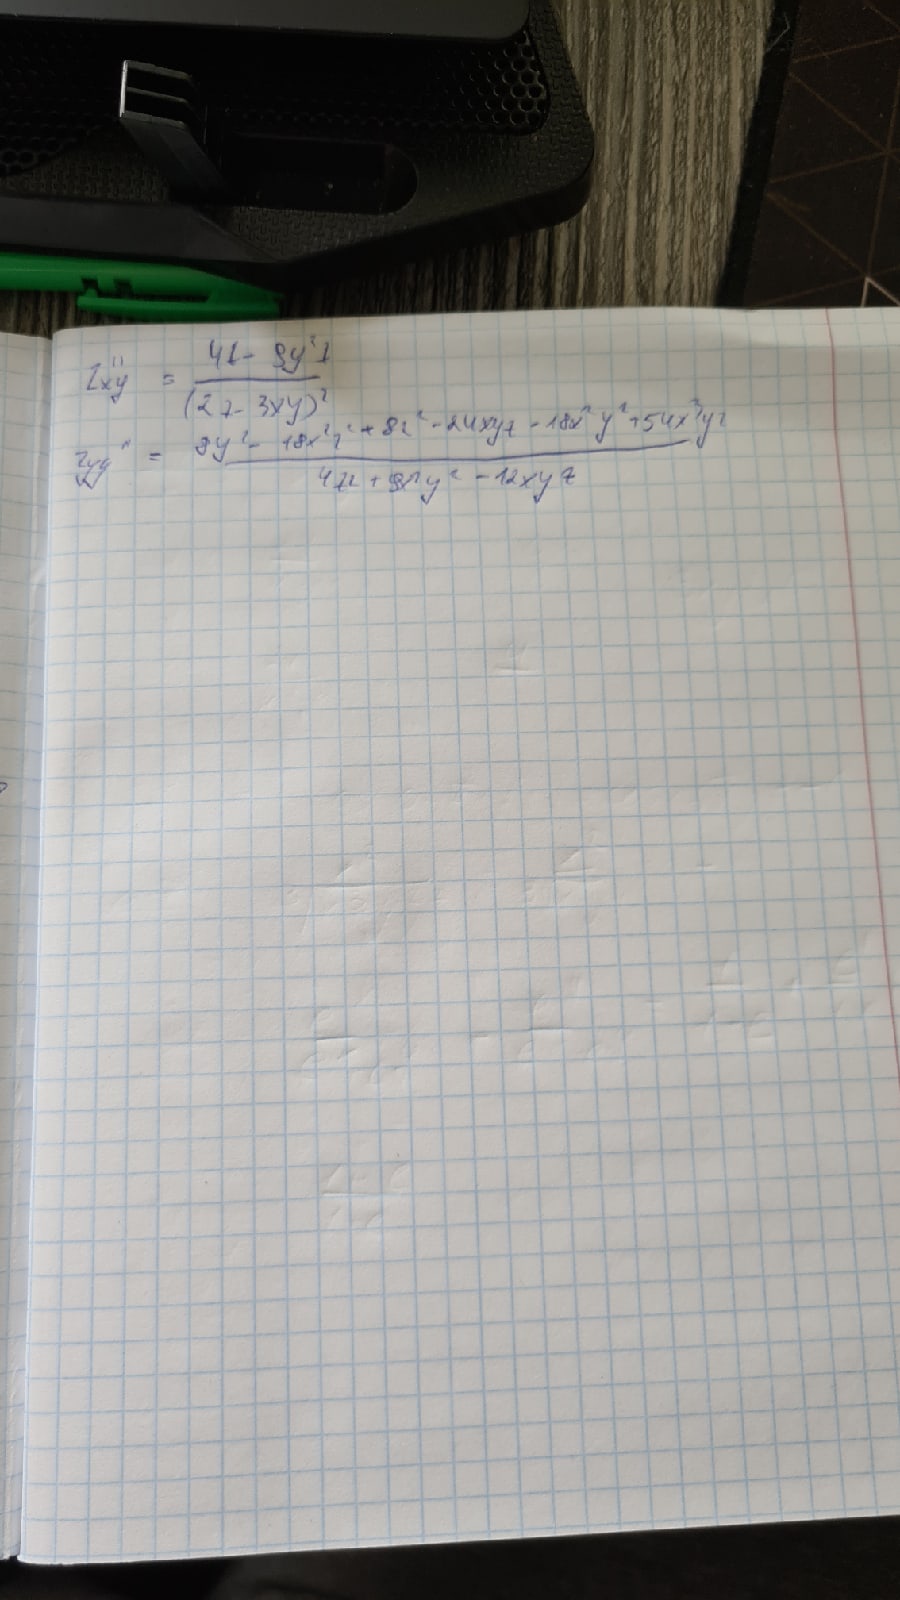 Zxy'' = (4z - 9y²z) / (2z - 3xy)²
Zyy'' = (8y² - 18x²z² + 8z² - 24xyz - 18x²y² + 54x³yz) / (4z² + 9x²y² - 12xyz)